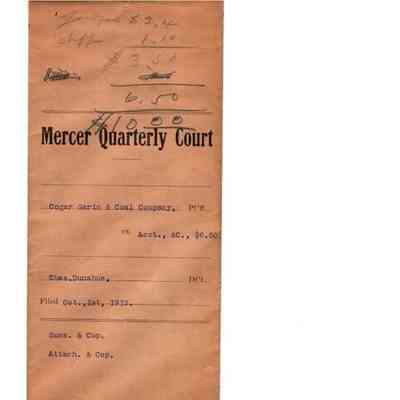 $ 3.50
6.50
$10.00
Mercer Quarterly Court
Coger Garin & Coal Company, Pl'ff.
vs Acct., &C., $6.50
Chas. Donahue, Def't.
Filed Oct., 1st, 1912.
Sums. & Cop.
Attach. & Cop.